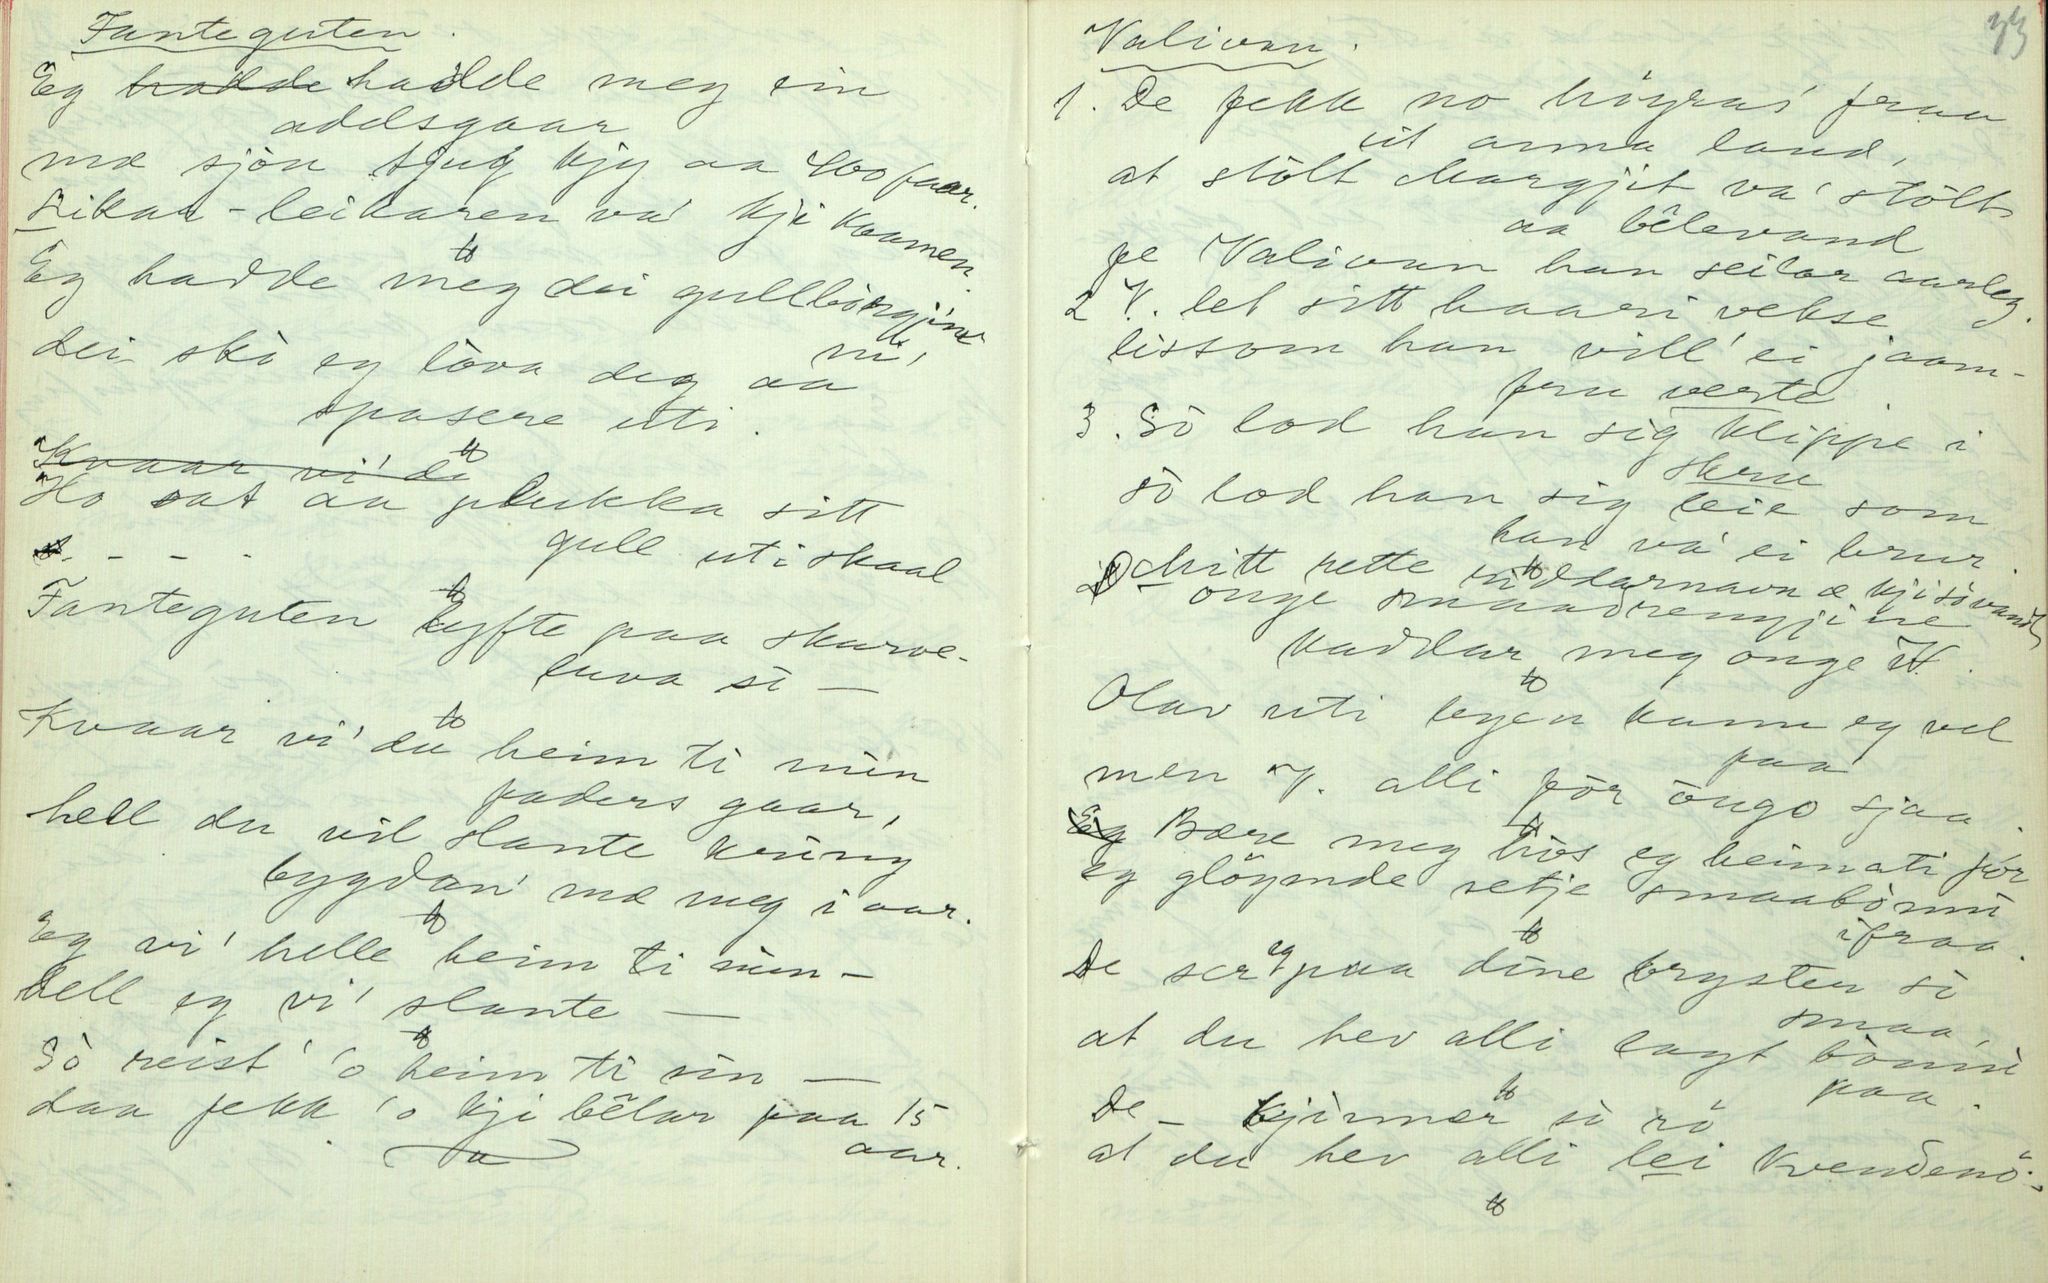 Fanteguten.
Eg hadde hadde meg ein
addsgaar
mæ sjön tjug kjy aa 400 faar.
Rikar-leikaren va' kji kaamen.
Eg hadde meg dei gullbòrgjine
ni,
dei ski eg lòva deg aa
spasere uti.
Kvaar vi' du
Ho sat aa plukka sitt
gull uti skaal
- - -
Fanteguten lyfte paa skarve-
luva si —
Kvaar vi' du heim ti min
faders gaar,
hell du vil slante kring
bygdan' mæ meg i aar.
Eg vi' helle heim ti min —
hell eg vi' slante —
Sò reist' 'o heim ti sin —
daa fekk 'o kji bêlar paa 15
aar.
33
Valivan.
1. De fekk no höyras' fraa
út anna land,
at stölt Margjit va' stölt
aa bêlevand
fe Valivan han seilar aarleg.
2 V. let sitt haari vekse
lissom han vill' ei jaam-
fru verte.
3. Sò lod han sig klippe i
skru
sò lod han sig leie som
han va' ei brur.
Mitt rette riddarnavn æ kji sò vandt
onge smaadrengjine
kaddar meg onge V.
Olav uti byen kann eg vel
paa
men V. alli fòr òngo sjaa.
Eg Bære meg trös eg heimati fòr
eg glöymde setje smaabònni
ifraa.
De ser eg paa dine brysten sò
smaa,
at du hev alli lagt bònni
paa.
De — kjinnar sò rò
at du hev alli lei kvendenö.